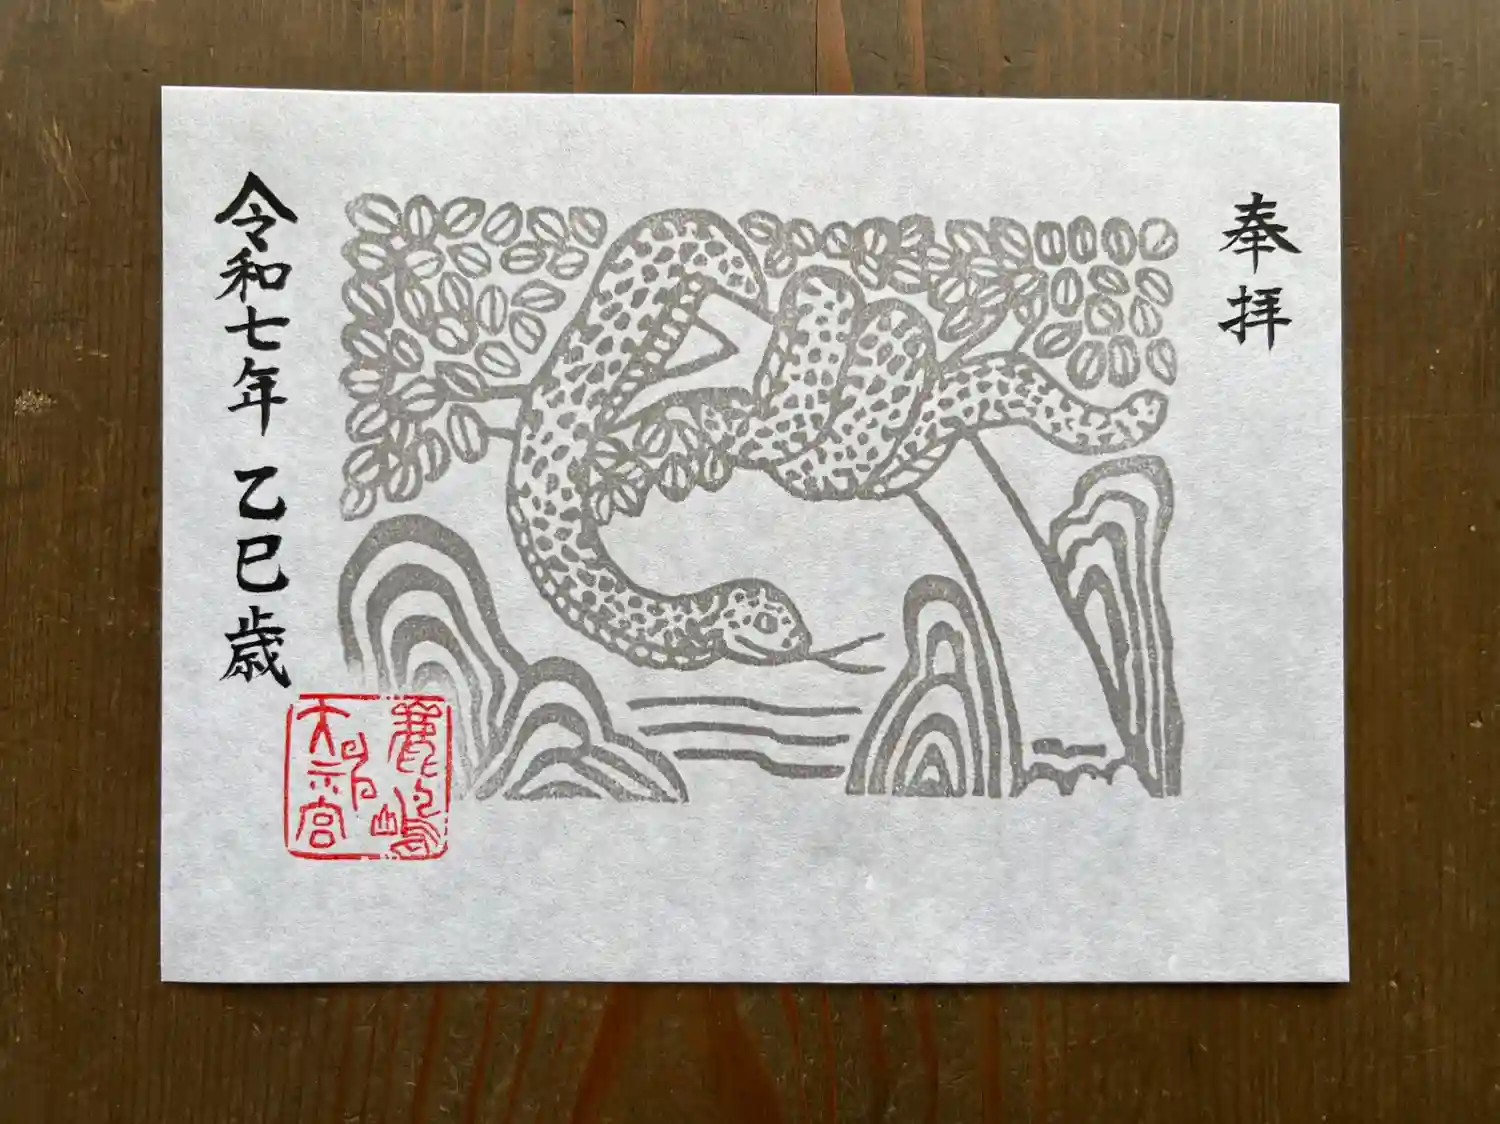 奉拝
令和七年 乙巳歳
鹿嶋
天神宮